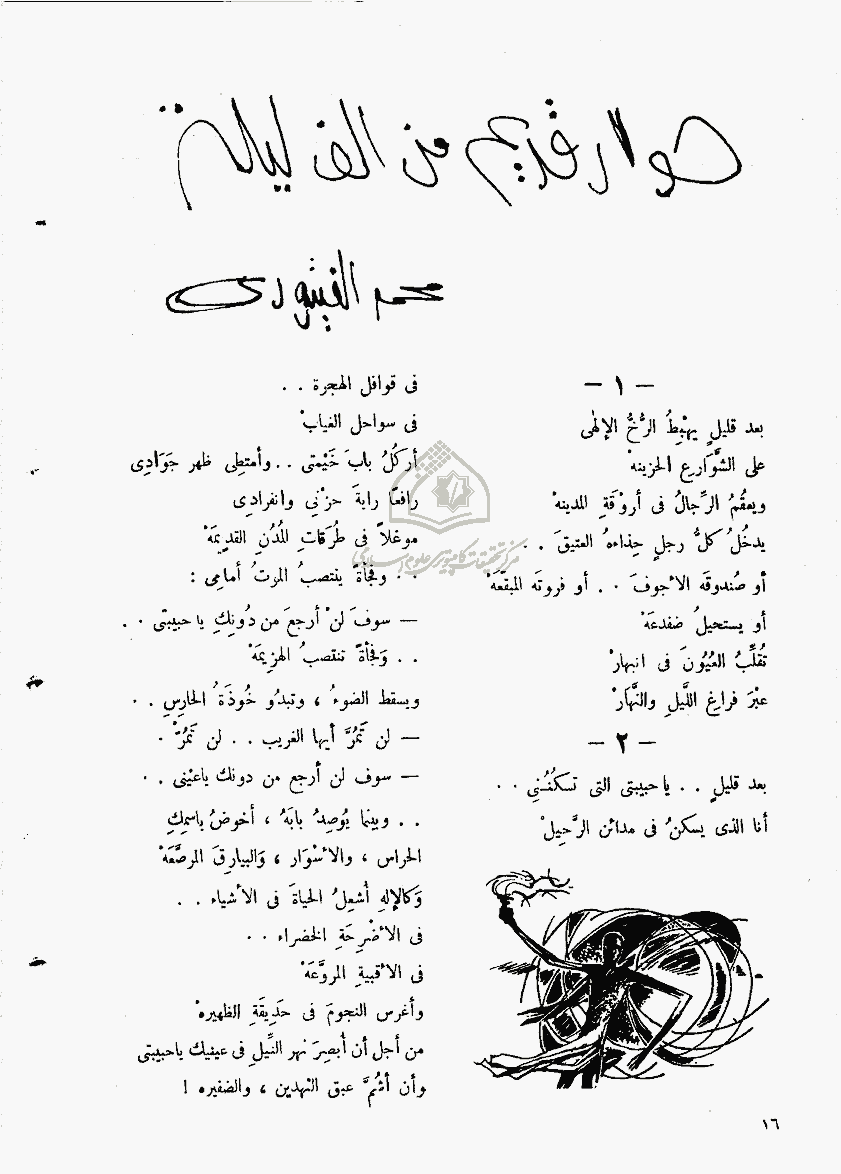 حوار قديم من الف ليلة
محمد الفيتوري
— ١ —
بعد قليلٍ يهْبِطُ الرُّخُّ الإلهٰى
على الشَّوَارِعِ الحزينهْ
ويعقُمُ الرِّجالُ فى أروْقَةِ المدينهْ
يدخُلُ كلُّ رجلٍ حِذاءهُ العتيقَ . .
أو صُندوقَه الأجوفَ . . أو فروتَه المبقّعَهْ
أو يستحيلُ ضفدعَهْ
تُقلِّبُ العيُونَ فى انبهارْ
عبْرَ فراغِ اللَّيلِ والنَّهَارْ
— ٢ —
بعد قليلٍ . . ياحبيبتى التى تسكُنُنِي . .
أنا الذى يسكنُ فى مدائن الرَّحِيلْ
فى قوافل الهجرة . .
فى سواحل الغيابْ
أركُلُ بابَ خَيْمتى . . وأمتطِى ظهر جَوَادِى
رافعًا رايةَ حزْنِي وانفرادِى
موغلاً فى طُرَقَاتِ المُدُنِ القديمَهْ
. . وفجأةً ينتصبُ الموتُ أمامِى :
— سوفَ لنْ أرجعَ من دُونِكِ ياحبيبتى . .
. . وَفجأةً تنتصبُ الهزِيمَهْ
ويسقط الضوءُ ، وتبدُو خُوذَةُ الحارِسِ . .
— لن تَمُرَّ أيها الغريب . . لن تَمُرّْ .
— سوف لن أرجع من دونك ياعيْنى . .
. . وبينما يُوصِدُ بابَهُ ، أخوضُ باسمِكِ
الحراس ، والأسْوَار ، وَالبيارِقَ المرصَّعَهْ
وَكالإلهِ أُشعِلُ الحياةَ فى الأشياء . .
فى الأضْرِحَةِ الخضراء . .
فى الأقبيةِ المروَّعَهْ
وأغرس النجومَ فى حَدِيقَةِ الظهيرهْ
من أجل أن أُبصِرَ نهر النِّيلِ فى عينيك ياحبيبتى
وأن أشُمَّ عبق النهدين ، والضفيره !
مركز تحقیقات کامپیوتری علوم اسلامی
١٦